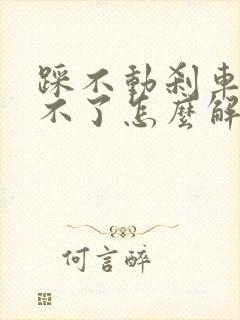 踩不動剎車
不了怎麼解
何言醉